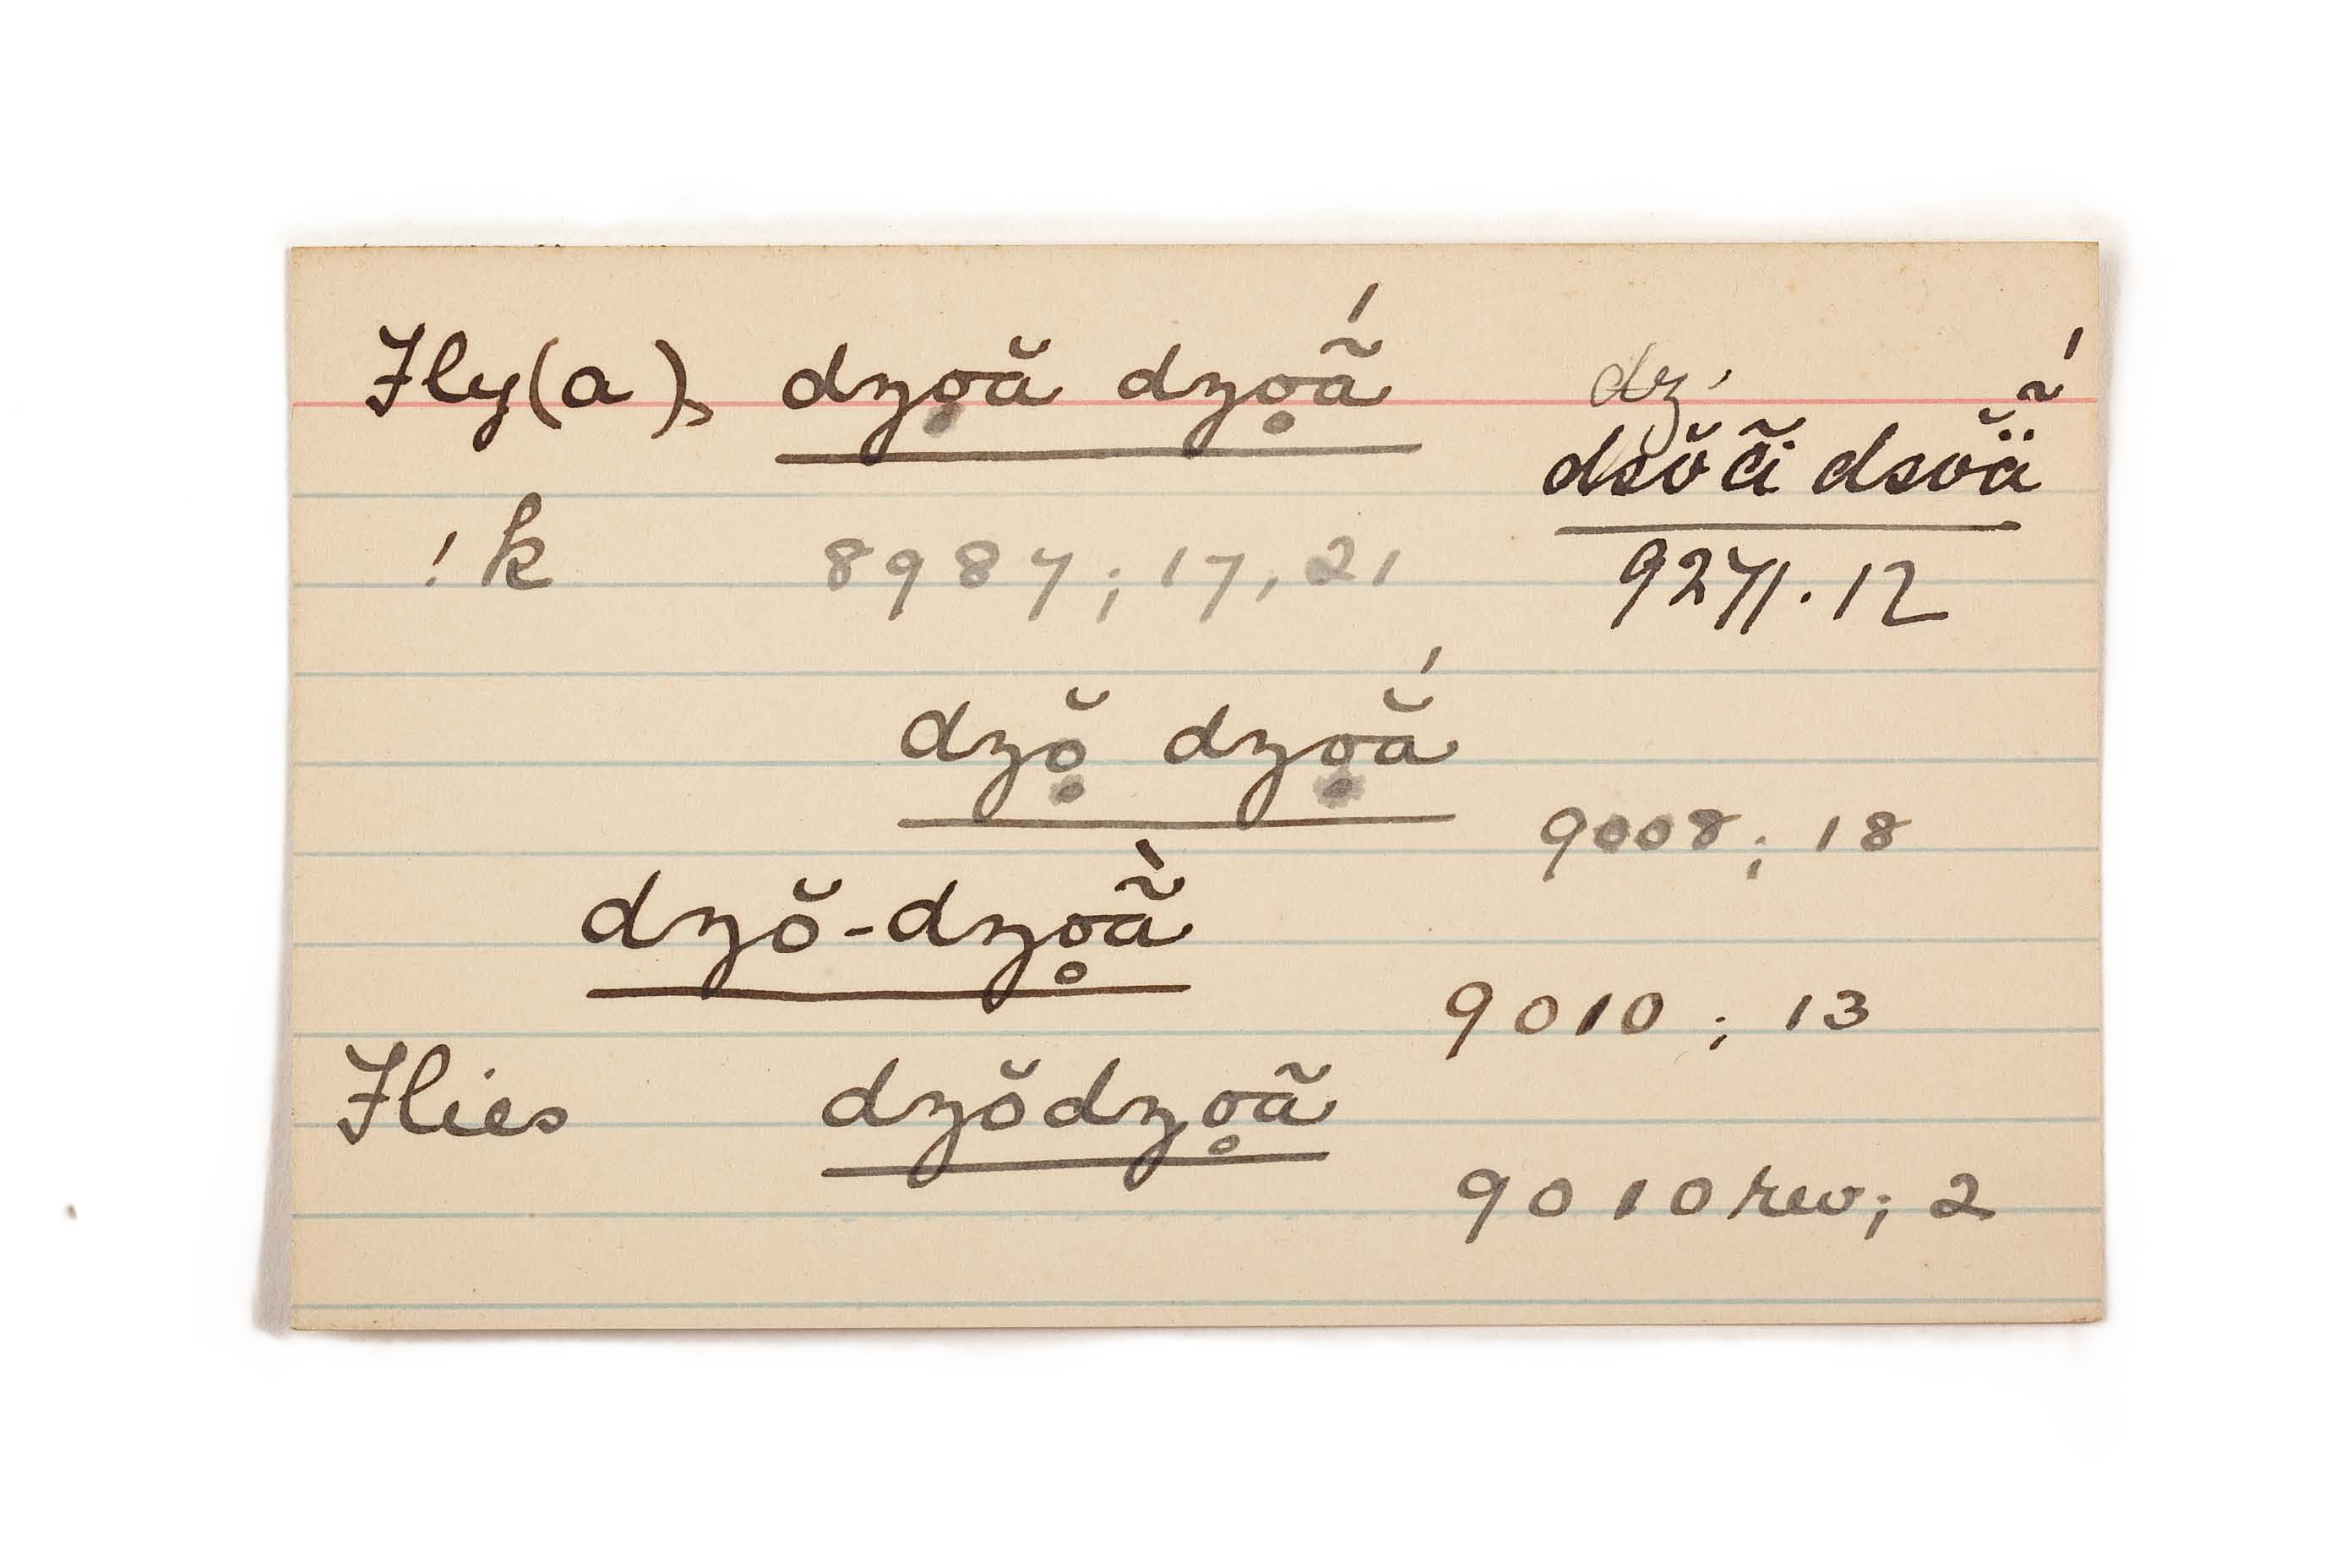 Fly (a), dzo̥ă dzo̥ā̃́
dz.
dsŏ dsŏä̃́
! k 8987; 17, 21
9271. 12
dzŏ̥ dzo̥ắ
9008; 18
dzŏ-dzo̥ã̀
9010; 13
Flies dzŏdzo̥ã
9010 rev; 2